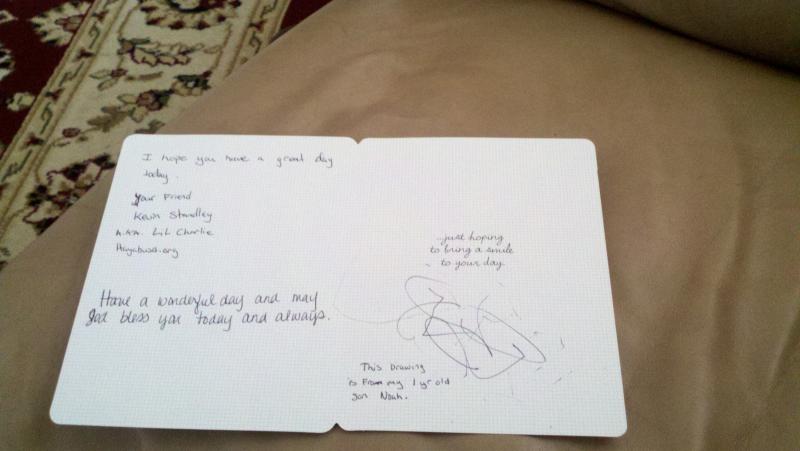 I hope you have a great day
today.
Your Friend
Kevin Standley
A.K.A. Lil Charlie
Hayabusa.org
Have a wonderful day and may
God bless you today and always.
...just hoping
to bring a smile
to your day.
This Drawing
is From my 1 yr old
son Noah.